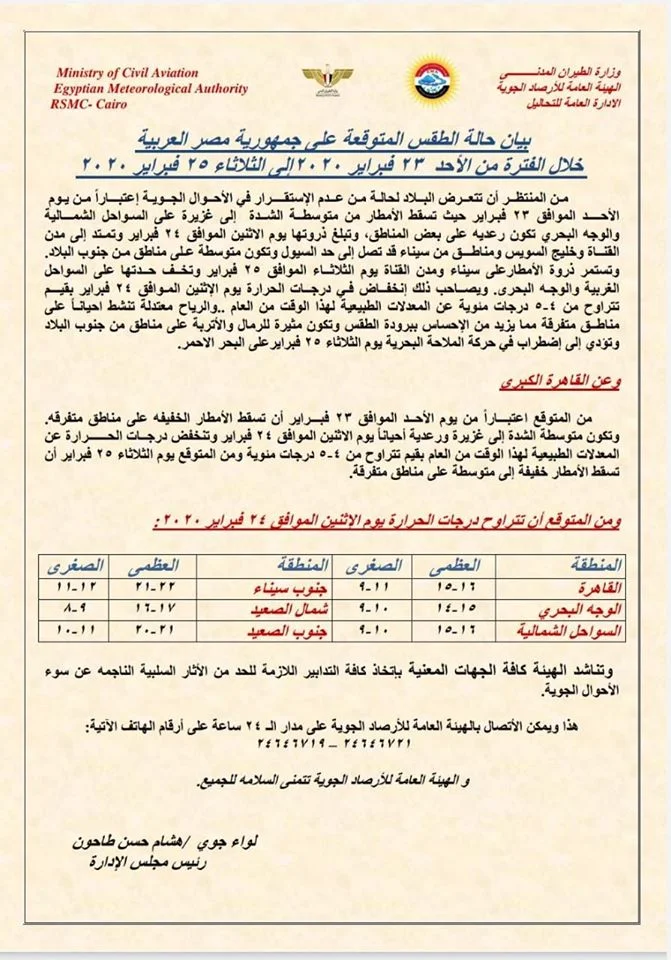 Ministry of Civil Aviation
Egyptian Meteorological Authority
RSMC- Cairo
وزارة الطيران المدنـــــي
الهيئة العامة للأرصاد الجوية
الادارة العامة للتحاليل
بيان حالة الطقس المتوقعة على جمهورية مصر العربية
خلال الفترة من الأحد ٢٣ فبراير ٢٠٢٠ إلى الثلاثاء ٢٥ فبراير ٢٠٢٠
مـن المنتظـر أن تتعـرض البـلاد لحالـة مـن عـدم الإستقـرار في الأحـوال الجويـة إعتبـاراً مـن يـوم
الأحــد الموافق ٢٣ فبراير حيث تسقط الأمطار من متوسطـة الشـدة إلى غزيرة على السواحل الشمـالية
والوجه البحري تكون رعديه على بعض المناطق، وتبلغ ذروتها يوم الاثنين الموافق ٢٤ فبراير وتمتـد إلى مدن
القنـاة وخليج السويس ومناطـق من سيناء قد تصل إلى حد السيول وتكون متوسطة على مناطق مـن جنوب البلاد.
وتستمر ذروة الأمطارعلى سيناء ومدن القناة يوم الثـلاثـاء الموافق ٢٥ فبراير وتخـف حـدتـها على السواحل
الغربية والوجـه البحرى. ويصـاحب ذلك إنخـفـاض فـي درجـات الحرارة يوم الإثنين الموافق ٢٤ فبراير بقيـم
تتراوح من ٤-٥ درجات مئوية عن المعدلات الطبيعية لهـذا الوقت من العام ..والرياح معتدلة تنشط احيانـاً على
مناطـق متفرقة مما يزيد من الإحساس ببرودة الطقس وتكون مثيرة للرمال والأتربة على مناطق من جنوب البلاد
وتؤدي إلى إضطراب في حركة الملاحة البحرية يوم الثلاثاء ٢٥ فبرايرعلى البحر الاحمر.
وعن القاهرة الكبرى
من المتوقع اعتبـاراً من يوم الأحـد الموافق ٢٣ فبـراير أن تسقـط الأمطار الخفيفه على مناطق متفرقه.
وتكون متوسطة الشدة إلى غزيرة ورعدية أحياناً يوم الاثنين الموافق ٢٤ فبراير وتنخفض درجات الحـــرارة عن
المعدلات الطبيعية لهذا الوقت من العام بقيم تتراوح من ٤-٥ درجات مئوية ومن المتوقع يوم الثلاثاء ٢٥ فبراير أن
تسقط الأمطار خفيفة إلى متوسطة على مناطق متفرقة.
ومن المتوقع أن تتراوح درجات الحرارة يوم الإثنين الموافق ٢٤ فبراير ٢٠٢٠:
المنطقة العظمى الصغرى المنطقة العظمى الصغرى
القاهرة ١٥-١٦ ٩-١١ جنوب سيناء ٢١-٢٢ ١١-١٢
الوجه البحري ١٤-١٥ ٩-١٠ شمال الصعيد ١٦-١٧ ٨-٩
السواحل الشمالية ١٥-١٦ ٩-١٠ جنوب الصعيد ٢٠-٢١ ١٠-١١
وتناشد الهيئة كافة الجهات المعنية بإتخاذ كافة التدابير اللازمة للحد من الأثار السلبية الناجمه عن سوء
الأحوال الجوية.
هذا ويمكن الأتصال بالهيئة العامة للأرصاد الجوية على مدار الـ ٢٤ ساعة على أرقام الهاتف الآتية:
٢٤٦٤٦٧٢١ – ٢٤٦٤٦٧١٩
و الهيئة العامة للأرصاد الجوية تتمنى السلامه للجميع.
لواء جوي /هشام حسن طاحون
رئيس مجلس الإدارة